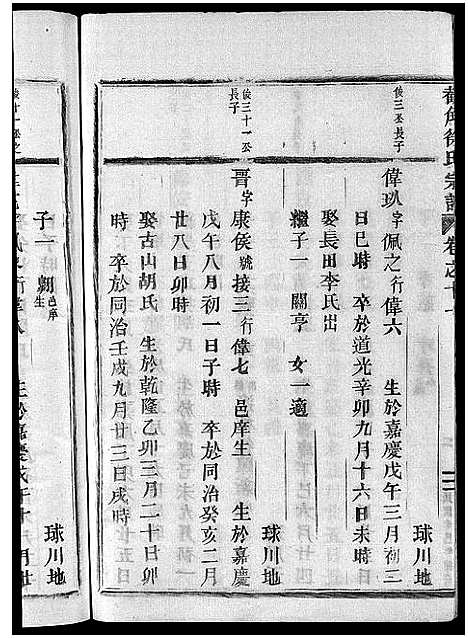 徐氏宗譜
卷之十
俊三公長子
偉玖字佩之行偉六 生於嘉慶戊午三月初三
日巳時 卒於道光辛卯九月十六日未時
球川地
娶長田李氏出
繼子一 關亨 女一適
俊三十一公長子
晋字康侯號接三行偉七 邑庠生 生於嘉慶
戊午八月初一日子時 卒於同治癸亥二月
廿八日卯時
球川地
娶古山胡氏 生於乾隆乙卯三月二十日卯
時 卒於同治壬戌九月廿三日戌時
子一 朝邑庠生
球川地